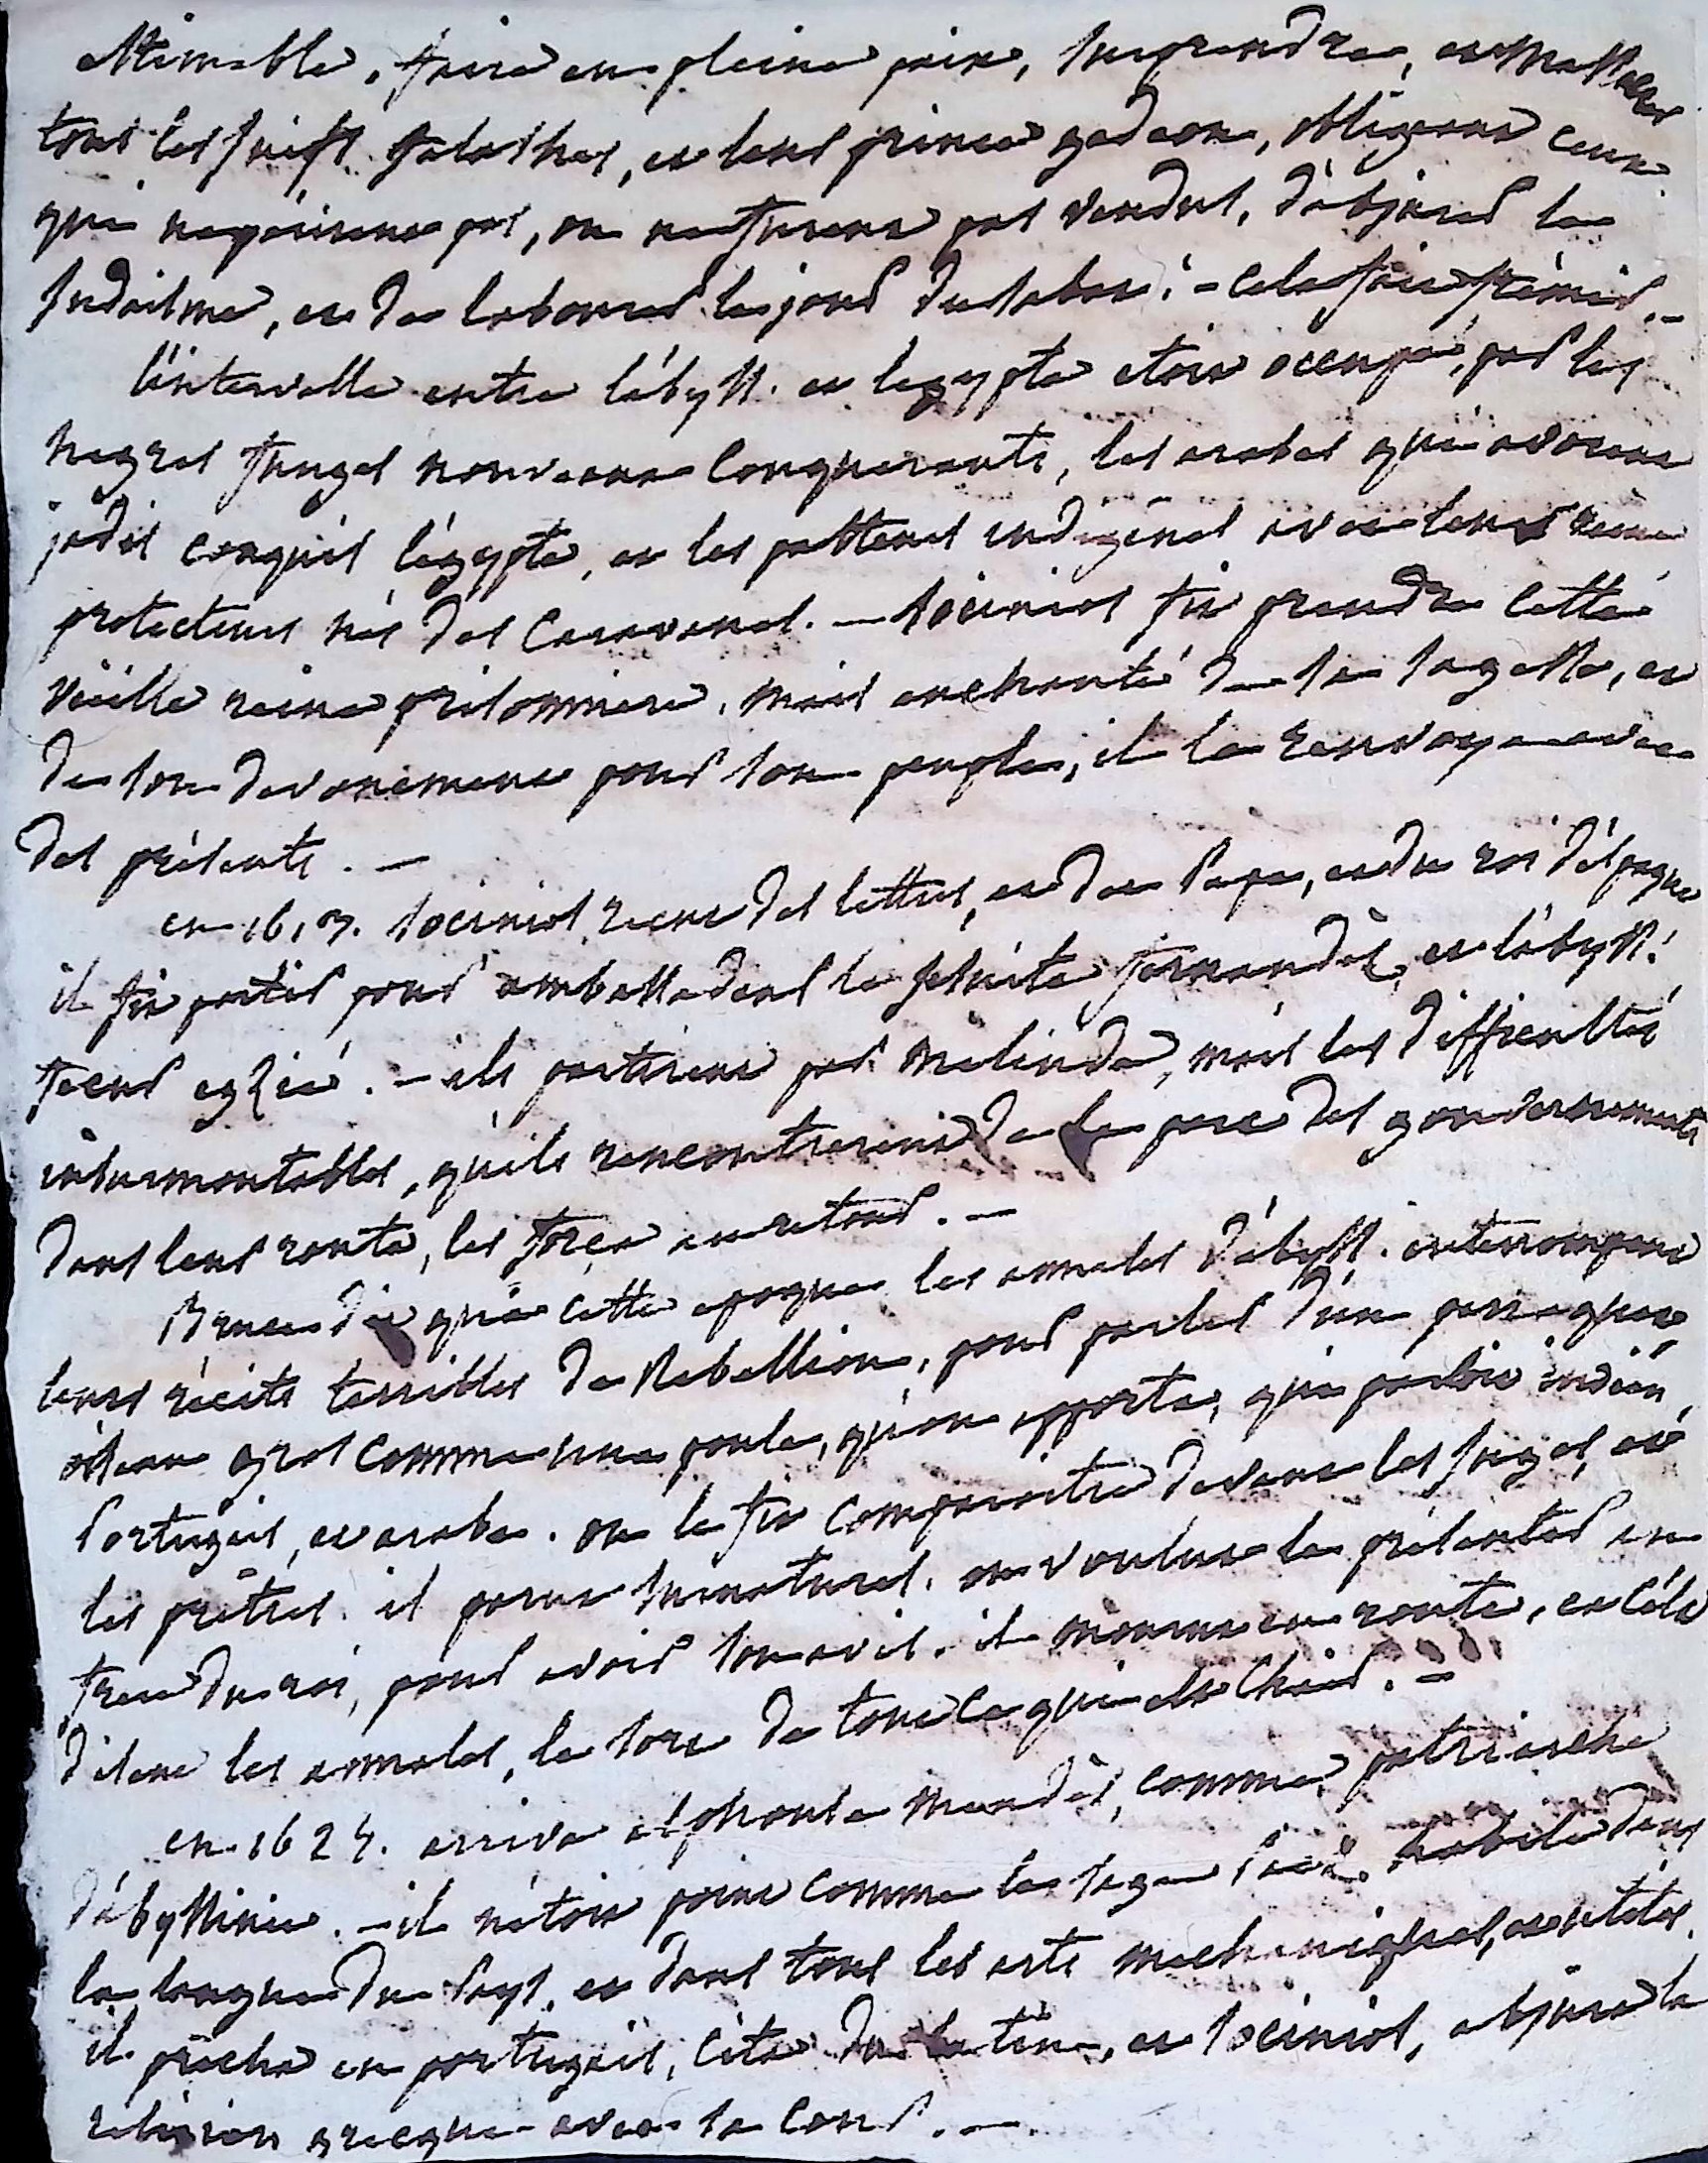 estimable, faire en pleine paix, surprendre, et massacrer
tous les juifs falashas, et leur prince gedeon, obligeant ceux
qui ne périrent pas, ou ne furent pas vendus, d'abjurer le
Judaïsme, et de labourer le jour du sabat; - cela fait frémir. -
l'intervalle entre l'abyss. et legypte etoit occupé, par les
negres funges nouveaux conquerants, les arabes qui avoient
jadis conquis l'égypte, et les pasteurs indigènes avec leur reine
protecteurs nés des caravanes. - socinios fit prendre cette
vieille reine prisonniere, mais enchanté de sa sagesse, et
de son devouement pour son peuple, il la renvoya avec
des présents. -
en 1613. socinios, recut des lettres, et du Pape, et du roi d'éspagne
il fit partir pour ambassadeur le jesuite fernandès, et l'abyss.
fecur egzié. - ils partirent par melinda, mais les difficultés
insurmontables, qu'ils rencontrerent de la part des gouvernements
dans leur route, les força au retour. -
Bruce dit qu'à cette epoque les annales d'abyss. interrompent
leurs récits terribles de Rebellion, pour parler d'un perroquet,
oiseau gros comme une poule, qu'on apporta, qui parloit indien,
Portugais, et arabe. on le fit comparoitre devant les juges, et
les prêtres. il parut surnaturel. on voulut le présenter au
frere du roi, pour avoir son avis. il mourut en route, et c'est
disent les annales, le sort de tout ce qui est chair. -
en 1624. arriva alphonse mendès, comme patriarche
d'abyssinie. - il n'étoit point comme le sage Paëz habile dans
la langue du Pays, et dans tous les arts mechaniques, et utiles.
il prêcha en portugais, cita du latin, et socinios, abjura la
religion grecque avec sa cour. -